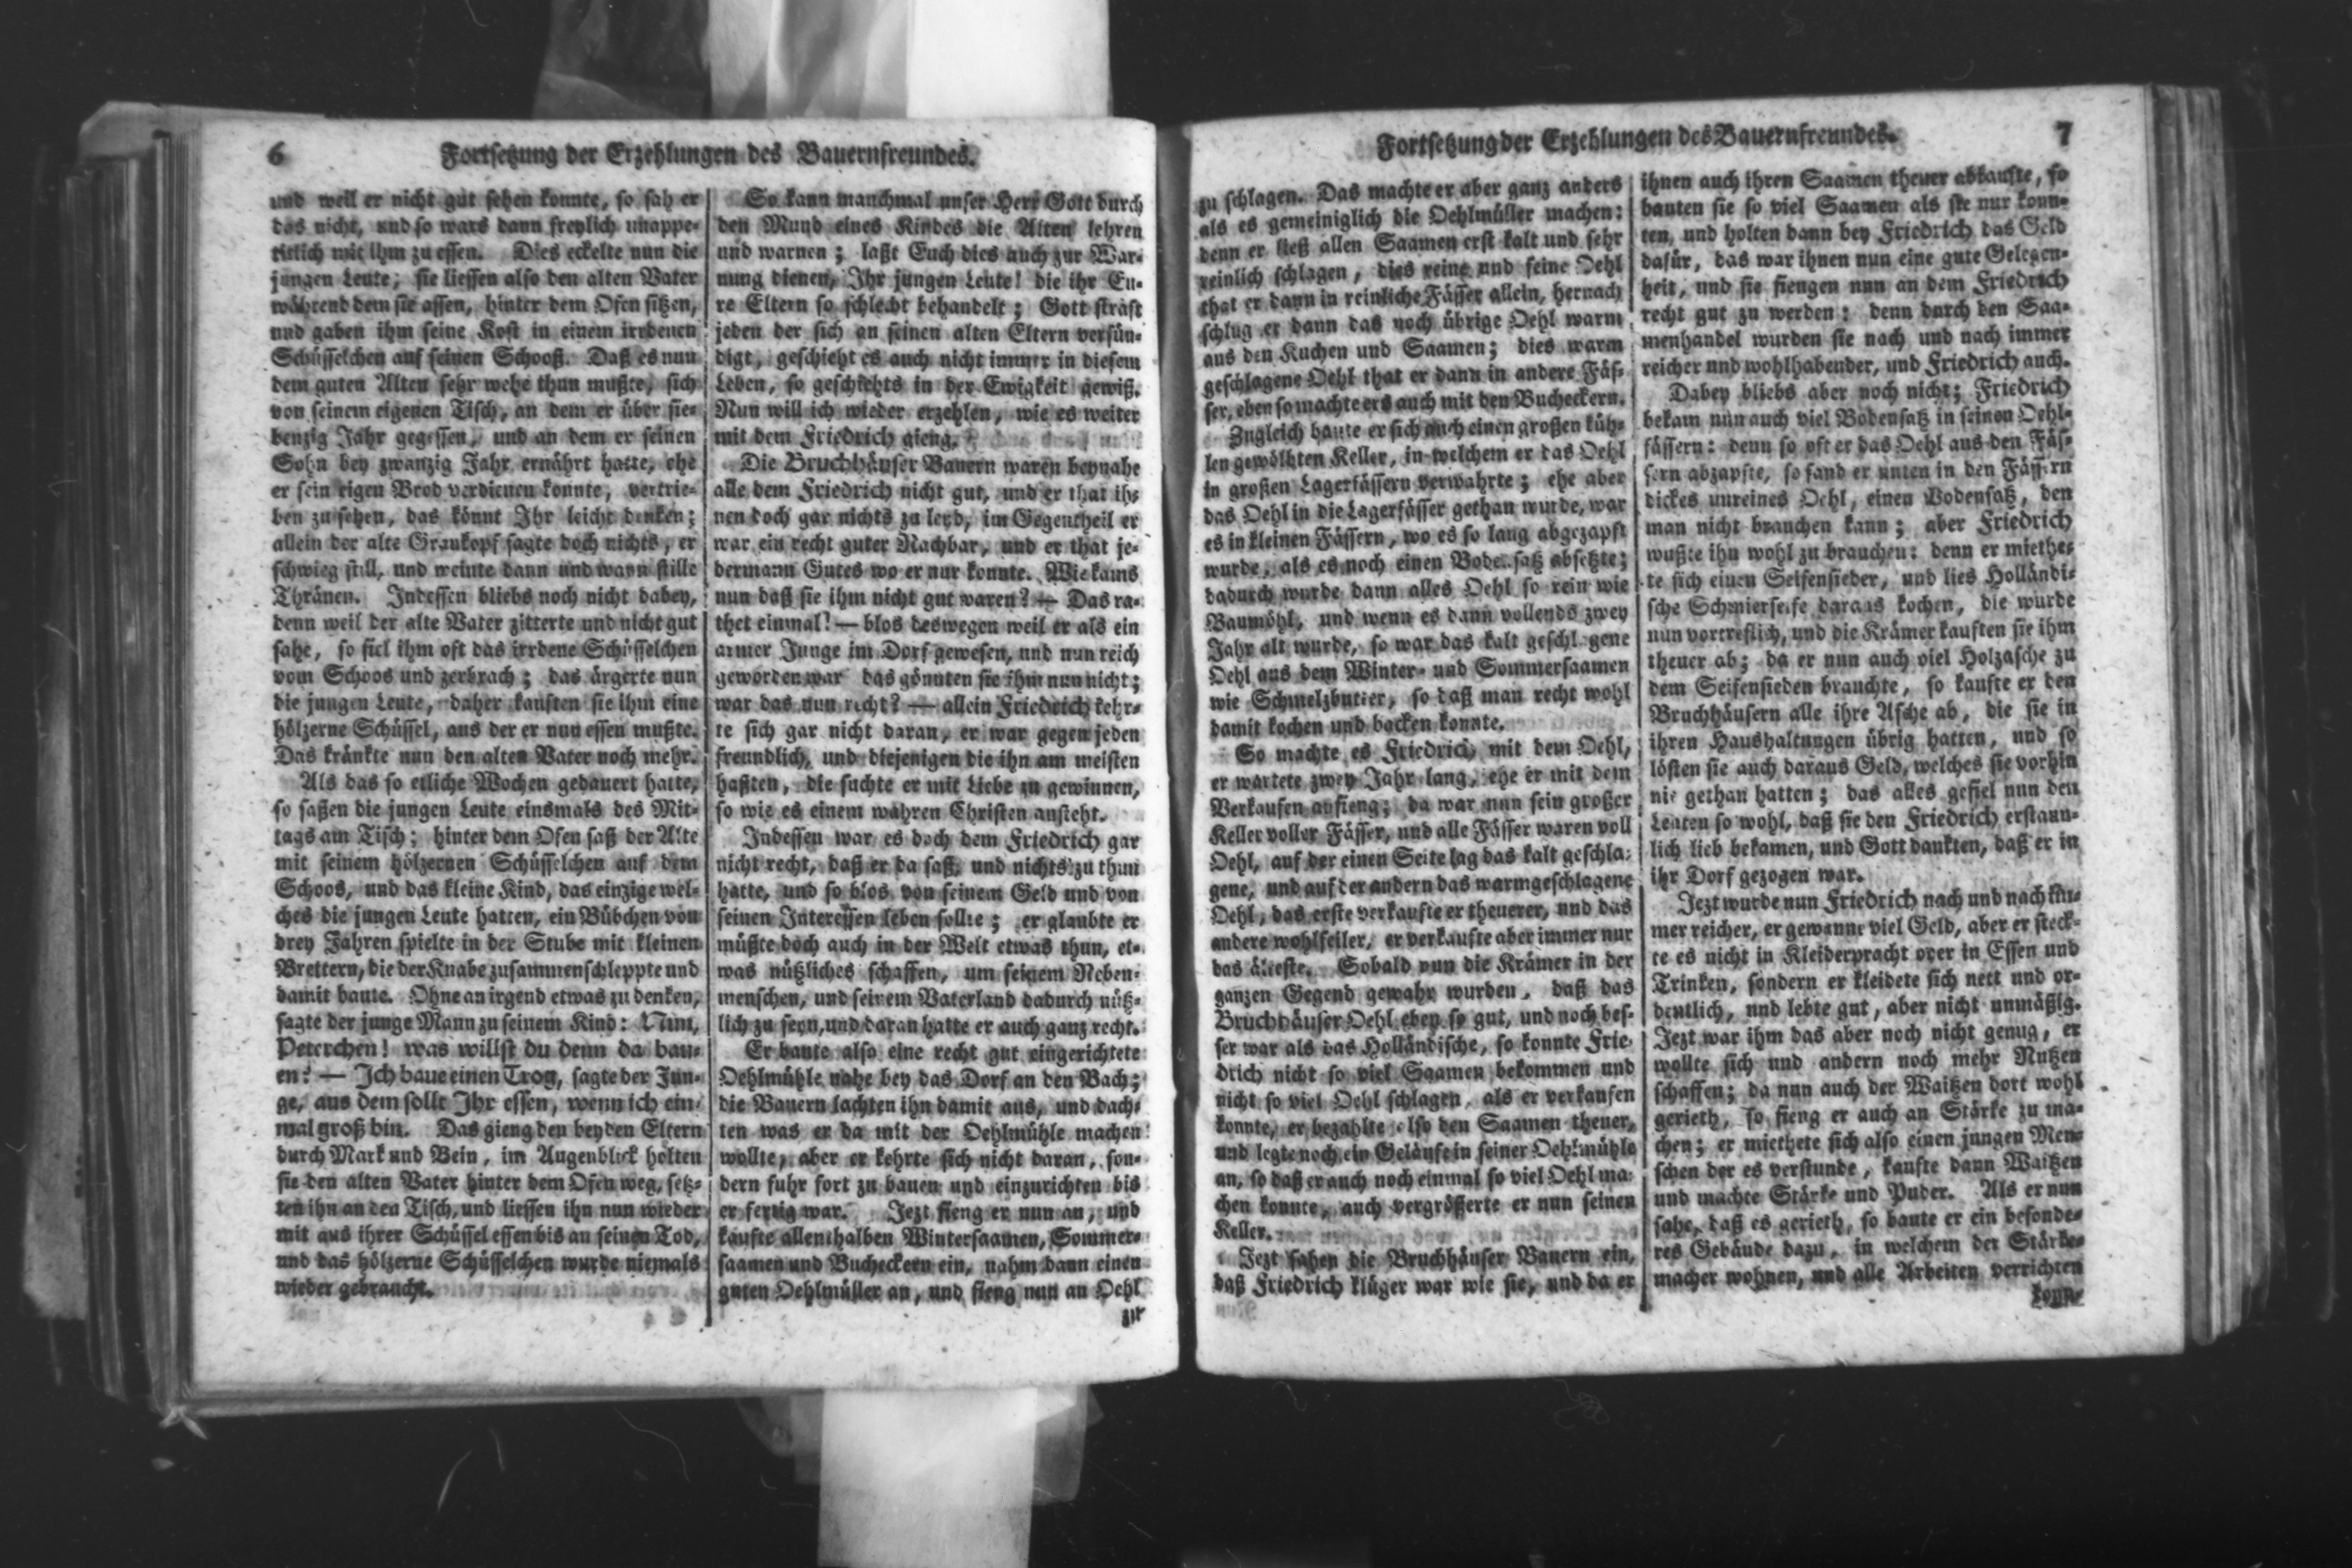 6
Fortsetzung der Erzehlungen des Bauernfreundes.
und weil er nicht gut sehen konnte, so sah er
das nicht, und so wars dann freylich unappe-
titlich mit ihm zu essen. Dies eckelte nun die
jungen Leute; sie liessen also den alten Vater
während dem sie assen, hinter dem Ofen sitzen,
und gaben ihm seine Kost in einem irrdenen
Schüsselchen auf seinen Schooß. Daß es nun
dem guten Alten sehr wehe thun mußte, sich
von seinem eigenen Tisch, an dem er über sie-
benzig Jahr gegessen, und an dem er seinen
Sohn bey zwanzig Jahr ernährt hatte, ehe
er sein eigen Brod verdienen konnte, vertrie-
ben zu sehen, das könnt Ihr leicht denken;
allein der alte Graukopf sagte doch nichts, er
schwieg still, und weinte dann und wann stille
Thränen. Indessen bliebs noch nicht dabey,
denn weil der alte Vater zitterte und nicht gut
sahe, so fiel ihm oft das irrdene Schüsselchen
vom Schoos und zerbrach; das ärgerte nun
die jungen Leute, daher kauften sie ihm eine
hölzerne Schüssel, aus der er nun essen mußte.
Das kränkte nun den alten Vater noch mehr.
Als das so etliche Wochen gedauert hatte,
so saßen die jungen Leute einsmals des Mit-
tags am Tisch; hinter dem Ofen saß der Alte
mit seinem hölzernen Schüsselchen auf dem
Schoos, und das kleine Kind, das einzige wel-
ches die jungen Leute hatten, ein Bübchen von
drey Jahren spielte in der Stube mit kleinen
Brettern, die der Knabe zusammenschleppte und
damit baute. Ohne an irgend etwas zu denken,
sagte der junge Mann zu seinem Kind: Nun,
Peterchen! was willst du denn da bau-
en? — Ich baue einen Trog, sagte der Jun-
ge, aus dem sollt Ihr essen, wenn ich ein-
mal groß bin. Das gieng den beyden Eltern
durch Mark und Bein, im Augenblick holten
sie den alten Vater hinter dem Ofen weg, setz-
ten ihn an den Tisch, und liessen ihn nun wieder
mit aus ihrer Schüssel essen bis an seinen Tod,
und das hölzerne Schüsselchen wurde niemals
wieder gebraucht.
So kann manchmal unser Herr Gott durch
den Mund eines Kindes die Alten lehren
und warnen; laßt Euch dies auch zur War-
nung dienen, Ihr jungen Leute! die ihr Eu-
re Eltern so schlecht behandelt; Gott straft
jeden der sich an seinen alten Eltern versün-
digt, geschieht es auch nicht immer in diesem
Leben, so geschiehts in der Ewigkeit gewiß.
Nun will ich wieder erzehlen, wie es weiter
mit dem Friedrich gieng.
Die Bruchhäuser Bauern waren beynahe
alle dem Friedrich nicht gut, und er that ih-
nen doch gar nichts zu leyd, im Gegentheil er
war ein recht guter Nachbar, und er that je-
dermann Gutes wo er nur konnte. Wie kams
nun daß sie ihm nicht gut waren? — Das ra-
thet einmal! — blos deswegen weil er als ein
armer Junge im Dorf gewesen, und nun reich
geworden war das gönnten sie ihm nun nicht;
war das nun recht? — allein Friedrich kehr-
te sich gar nicht daran, er war gegen jeden
freundlich, und diejenigen die ihn am meisten
haßten, die suchte er mit Liebe zu gewinnen,
so wie es einem wahren Christen ansteht.
Indessen war es doch dem Friedrich gar
nicht recht, daß er da saß, und nichts zu thun
hatte, und so blos von seinem Geld und von
seinen Interessen leben sollte; er glaubte er
müßte doch auch in der Welt etwas thun, et-
was nützliches schaffen, um seinem Neben-
menschen, und seinem Vaterland dadurch nütz-
lich zu seyn, und daran hatte er auch ganz recht.
Er baute also eine recht gut eingerichtete
Oehlmühle nahe bey das Dorf an den Bach;
die Bauern lachten ihn damit aus, und dach-
ten was er da mit der Oehlmühle machen
wollte, aber er kehrte sich nicht daran, son-
dern fuhr fort zu bauen und einzurichten bis
er fertig war. Jezt fieng er nun an, und
kaufte allenthalben Wintersaamen, Sommer-
saamen und Bucheckern ein, nahm dann einen
guten Oehlmüller an, und fieng nun an Oehl
zu
Fortsetzung der Erzehlungen des Bauernfreundes.
7
zu schlagen. Das machte er aber ganz anders
als es gemeiniglich die Oehlmüller machen:
denn er ließ allen Saamen erst kalt und sehr
reinlich schlagen, dies reine und feine Oehl
that er dann in reinliche Fässer allein, hernach
schlug er dann das noch übrige Oehl warm
aus den Kuchen und Saamen; dies warm
geschlagene Oehl that er dann in andere Fäs-
ser, eben so machte ers auch mit den Bucheckern.
Zugleich baute er sich auch einen großen küh-
len gewölbten Keller, in welchem er das Oehl
in großen Lagerfässern verwahrte; ehe aber
das Oehl in die Lagerfässer gethan wurde, war
es in kleinen Fässern, wo es so lang abgezapft
wurde, als es noch einen Bodensatz absetzte;
dadurch wurde dann alles Oehl so rein wie
Baumöhl, und wenn es dann vollends zwey
Jahr alt wurde, so war das kalt geschlagene
Oehl aus dem Winter- und Sommersaamen
wie Schmelzbutter, so daß man recht wohl
damit kochen und backen konnte.
So machte es Friedrich mit dem Oehl,
er wartete zwey Jahr lang, ehe er mit dem
Verkaufen anfieng; da war nun sein großer
Keller voller Fässer, und alle Fässer waren voll
Oehl, auf der einen Seite lag das kalt geschla-
gene, und auf der andern das warmgeschlagene
Oehl, das erste verkaufte er theuerer, und das
andere wohlfeiler, er verkaufte aber immer nur
das älteste. Sobald nun die Krämer in der
ganzen Gegend gewahr wurden, daß das
Bruchhäuser Oehl eben so gut, und noch bes-
ser war als das Holländische, so konnte Frie-
drich nicht so viel Saamen bekommen und
nicht so viel Oehl schlagen, als er verkaufen
konnte, er bezahlte also den Saamen theuer,
und legte noch ein Geläufe in seiner Oehlmühle
an, so daß er auch noch einmal so viel Oehl ma-
chen konnte, auch vergrößerte er nun seinen
Keller.
Jezt sahen die Bruchhäuser Bauern ein,
daß Friedrich klüger war wie sie, und da er
ihnen auch ihren Saamen theuer abkaufte, so
bauten sie so viel Saamen als sie nur konn-
ten, und holten dann bey Friedrich das Geld
dafür, das war ihnen nun eine gute Gelegen-
heit, und sie fiengen nun an dem Friedrich
recht gut zu werden: denn durch den Saa-
menhandel wurden sie nach und nach immer
reicher und wohlhabender, und Friedrich auch.
Dabey bliebs aber noch nicht; Friedrich
bekam nun auch viel Bodensatz in seinen Oehl-
fässern: denn so oft er das Oehl aus den Fäs-
sern abzapfte, so fand er unten in den Fässern
dickes unreines Oehl, einen Bodensatz, den
man nicht brauchen kann; aber Friedrich
wußte ihn wohl zu brauchen: denn er miethe-
te sich einen Seifensieder, und lies Holländi-
sche Schmierseife daraus kochen, die wurde
nun vortreflich, und die Krämer kauften sie ihm
theuer ab; da er nun auch viel Holzasche zu
dem Seifensieden brauchte, so kaufte er den
Bruchhäusern alle ihre Asche ab, die sie in
ihren Haushaltungen übrig hatten, und so
lösten sie auch daraus Geld, welches sie vorhin
nie gethan hatten; das alles gefiel nun den
Leuten so wohl, daß sie den Friedrich erstaun-
lich lieb bekamen, und Gott dankten, daß er in
ihr Dorf gezogen war.
Jezt wurde nun Friedrich nach und nach im-
mer reicher, er gewanne viel Geld, aber er steck-
te es nicht in Kleiderpracht oder in Essen und
Trinken, sondern er kleidete sich nett und or-
dentlich, und lebte gut, aber nicht unmäßig.
Jezt war ihm das aber noch nicht genug, er
wollte sich und andern noch mehr Nutzen
schaffen; da nun auch der Waitzen dort wohl
gerieth, so fieng er auch an Stärke zu ma-
chen; er miethete sich also einen jungen Men-
schen der es verstunde, kaufte dann Waitzen
und machte Stärke und Puder. Als er nun
sahe, daß es gerieth, so baute er ein besonde-
res Gebäude dazu, in welchem der Stärke-
macher wohnen, und alle Arbeiten verrichten
konn-